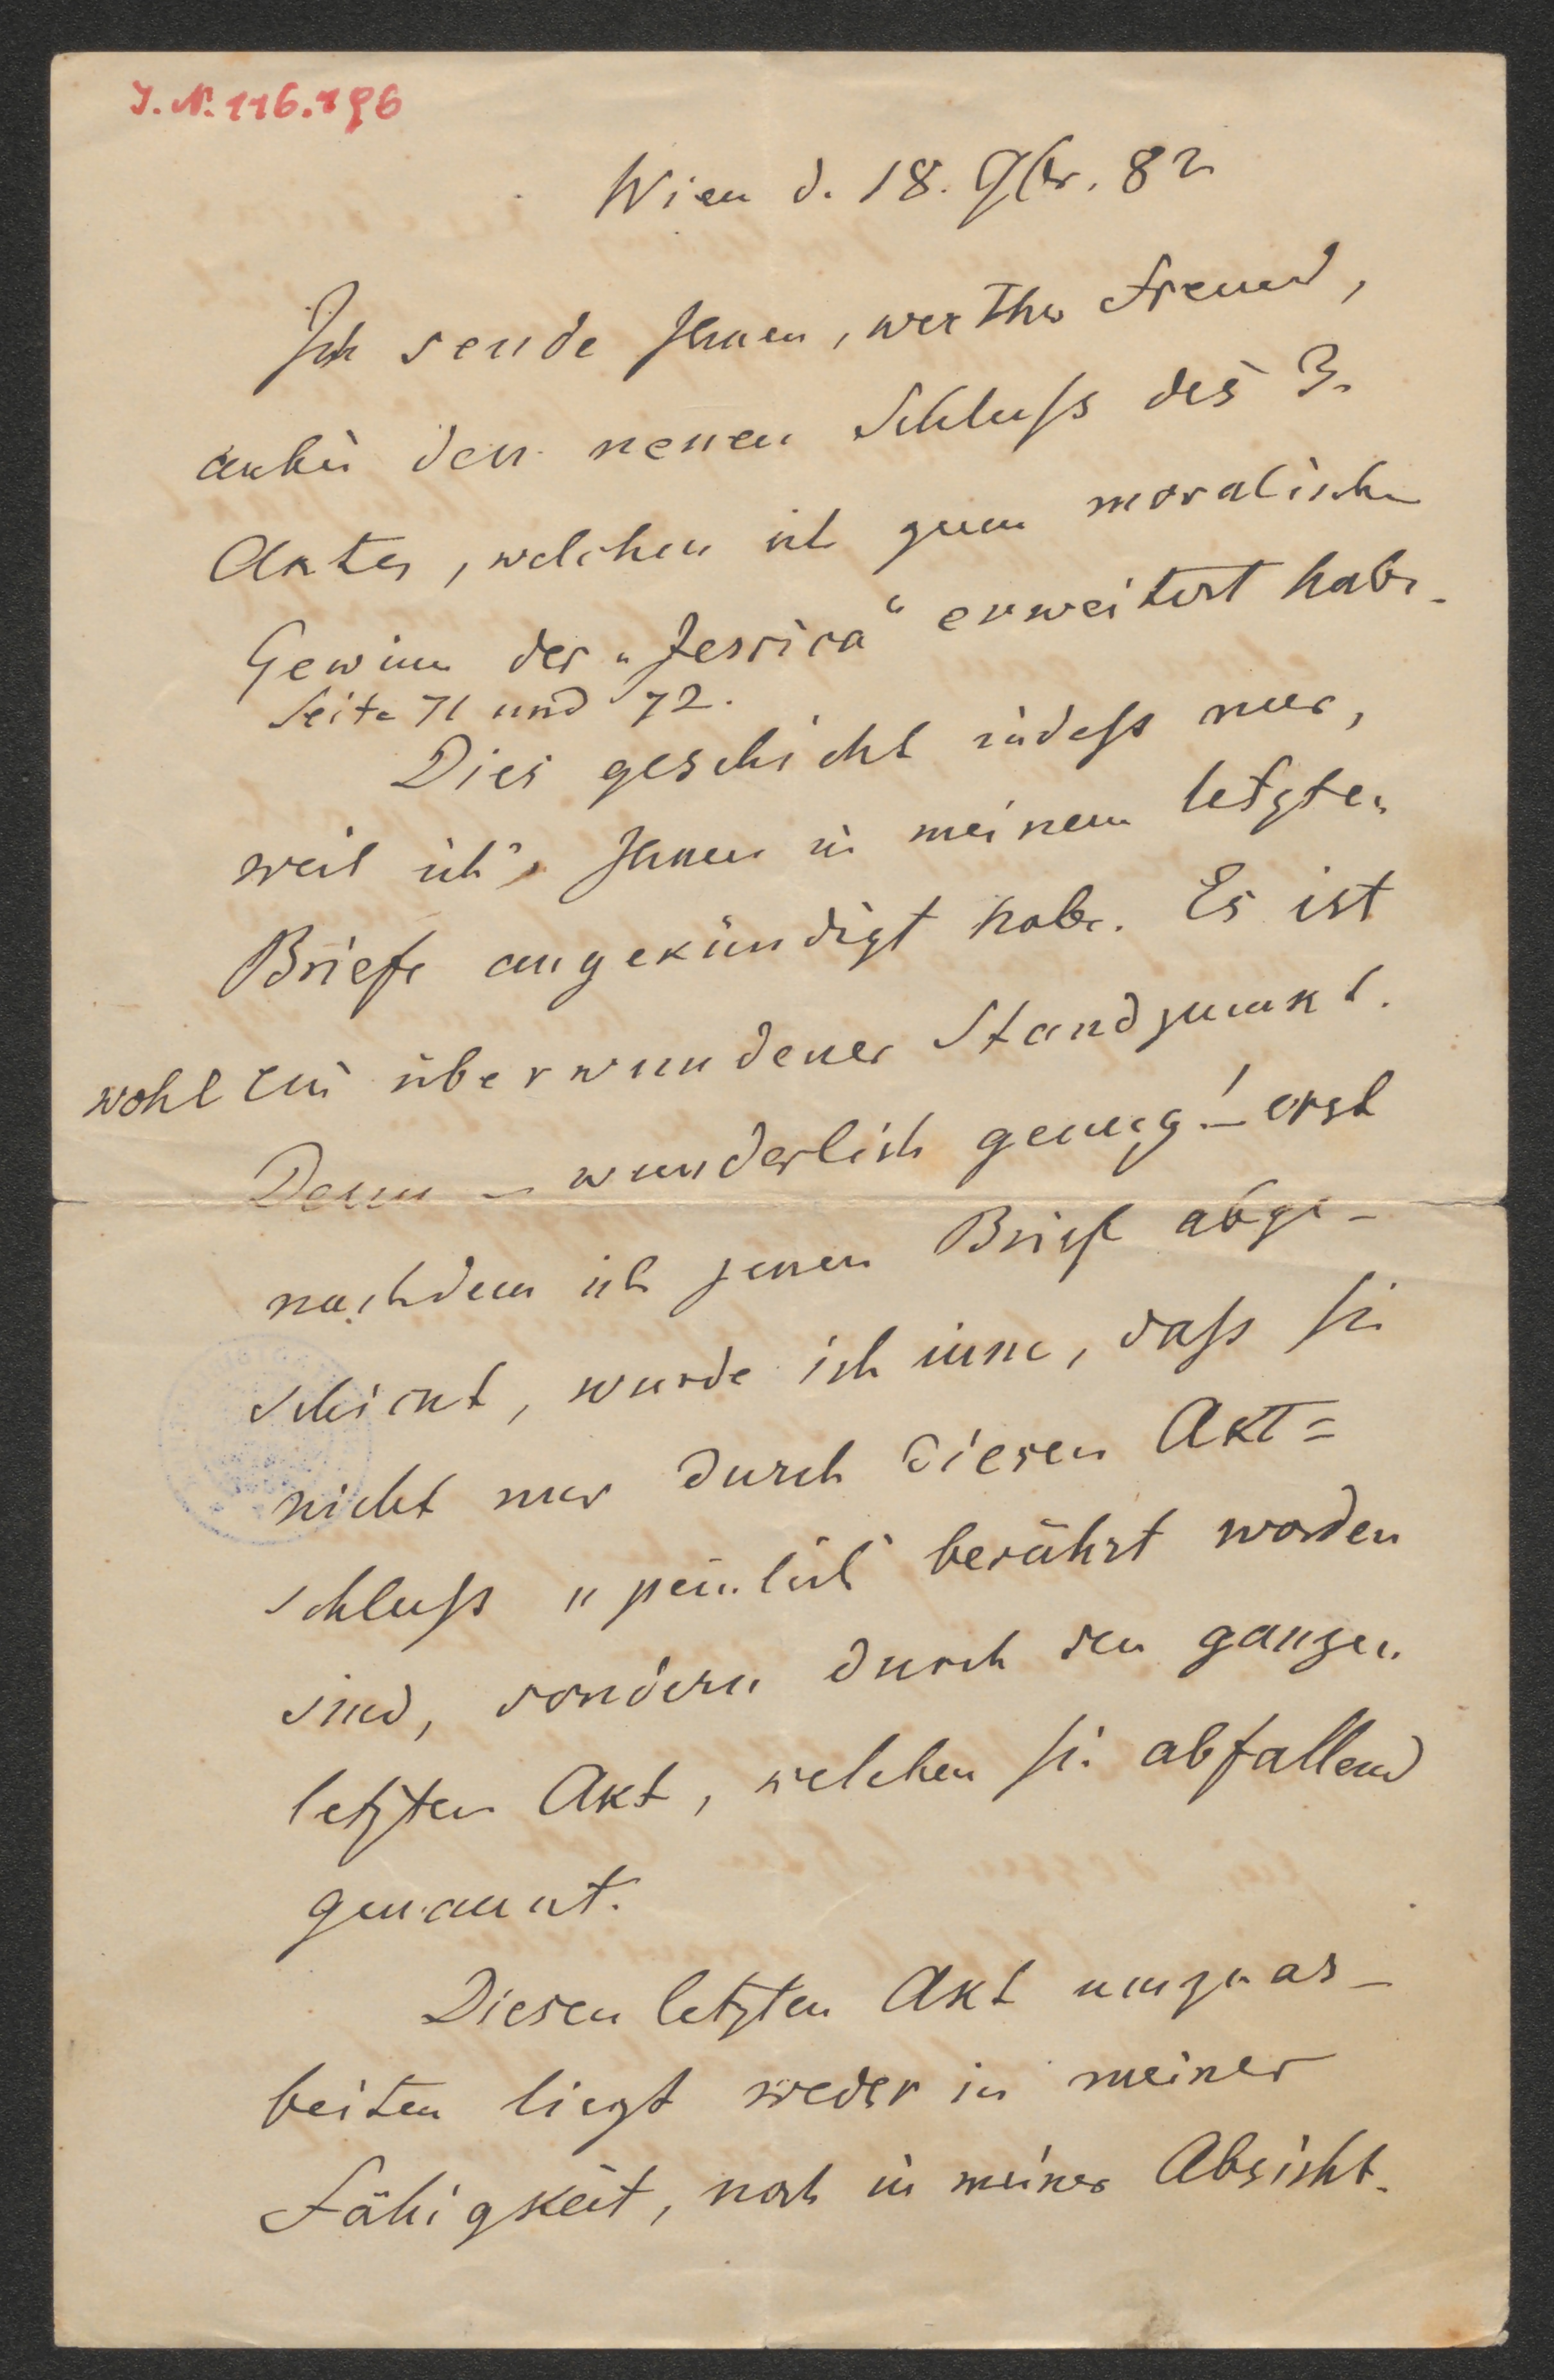 J. N. 116.196
Wien d. 18. 9br. 82
Ich sende Ihnen, werther Freund,
anbei den neuen Schluß des 3.
Aktes, welchen ich zum moralischen
Gewinn der „Jessica“ erweitert habe.
Seite 71 und 72.
Dies geschieht indeß nur,
weil ich's Ihnen in meinem letzten
Briefe angekündigt habe. Es ist
wohl ein überwundener Standpunkt.
Denn – wunderlich genug! – erst
nachdem ich jenen Brief abge-
schickt, wurde ich inne, daß Sie
nicht nur durch diesen Akt=
schluß „peinlich“ berührt worden
sind, sondern durch den ganzen
letzten Akt, welchen Sie abfallend
genannt.
Diesen letzten Akt umzuar-
beiten liegt weder in meiner
Fähigkeit, noch in meiner Absicht.